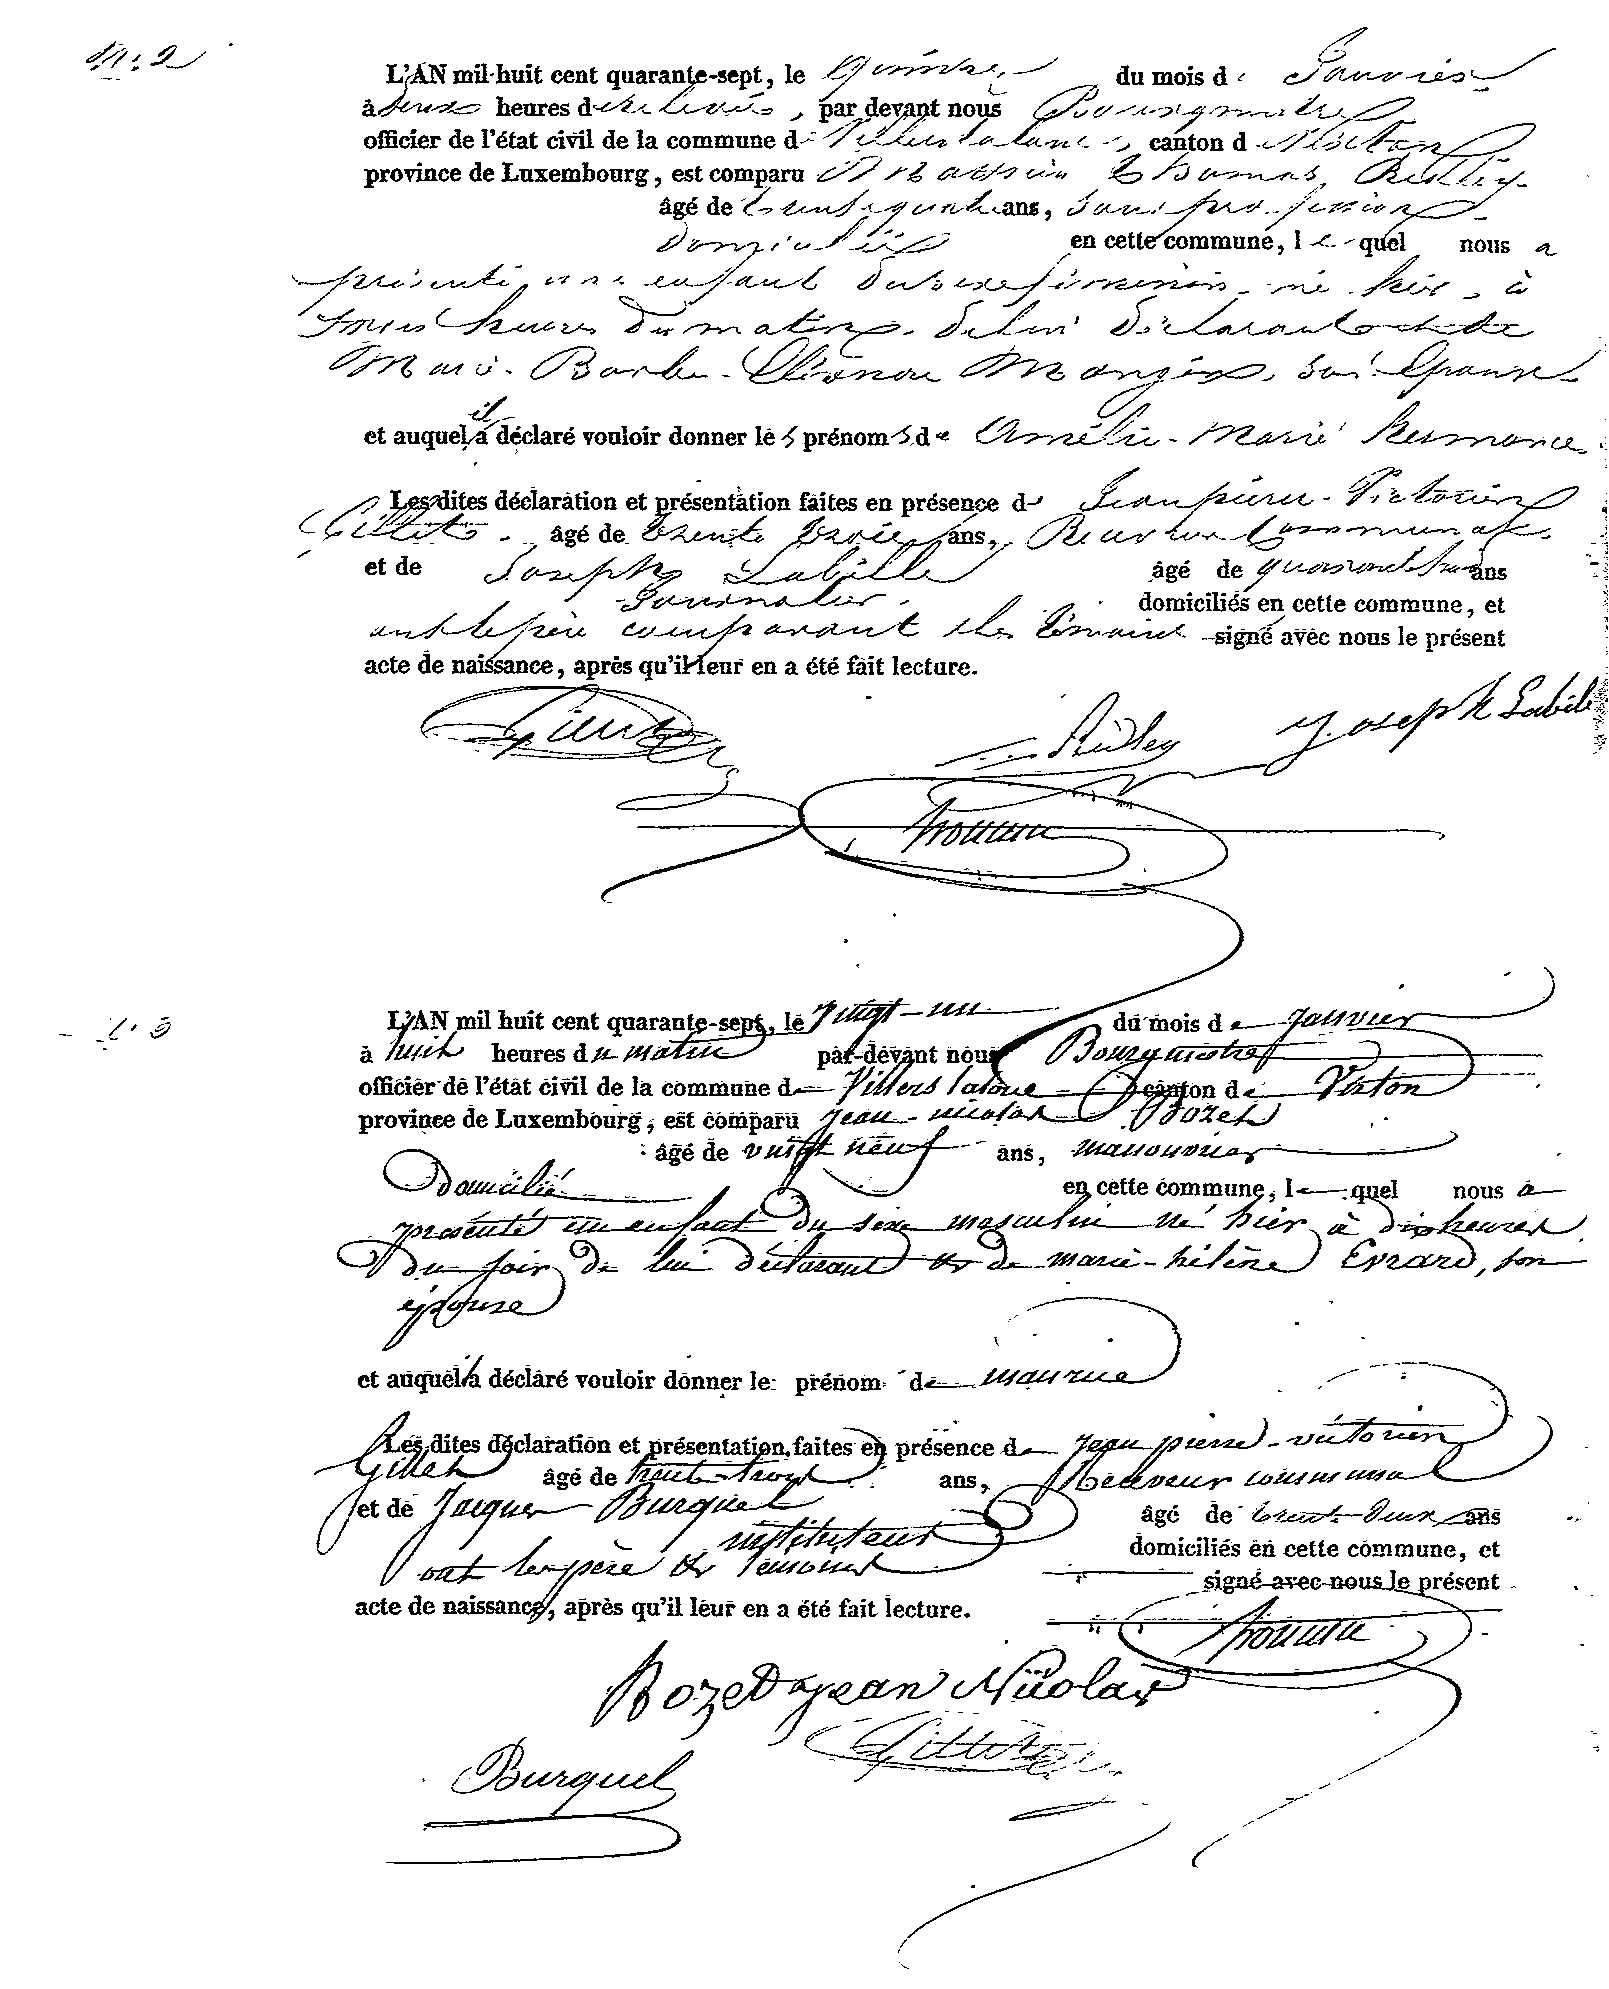 N° 2
L'AN mil huit cent quarante-sept, le Quinze du mois de Janvier
à deux heures de relevée, par devant nous Bourgmestre
officier de l'état civil de la commune de Villers la loue, canton de Virton
province de Luxembourg, est comparu Thomas Rülley
âgé de trente quatre ans, sans profession
domicilié en cette commune, lequel nous a
présenté un enfant du sexe féminin né hier, à
heures du matin, de lui déclarant et de
Marie Barbe Eléonore Mangin, son Epouse
et auquel il a déclaré vouloir donner les prénoms de Amélie Marie hermance
Les dites déclaration et présentation faites en présence de Jean pierre Victorien
Gillet âgé de trente trois ans, Receveur Communal
et de Joseph Labille âgé de quarante ans
Journalier domiciliés en cette commune, et
ont le père comparant & les témoins signé avec nous le présent
acte de naissance, après qu'il leur en a été fait lecture.
Gillet Rülley Joseph Labille
L'AN mil huit cent quarante-sept, le vingt-un du mois de Janvier
à huit heures du matin par-devant nous Bourgmestre
officier de l'état civil de la commune de Villers la loue canton de Virton
province de Luxembourg, est comparu Jean-nicolas Bozet
âgé de vingt neuf ans, manouvrier
Domicilié en cette commune, lequel nous a
présenté un enfant du sexe masculin né hier à dix heures
du soir de lui déclarant & de marie-hélène Evrard, son
épouse
et auquel il a déclaré vouloir donner le prénom de maurice
Les dites déclaration et présentation faites en présence de Jean pierre-victorien
Gillet âgé de trente-trois ans, Receveur communal
et de Jacques Burquel âgé de trente-deux ans
instituteur domiciliés en cette commune, et
ont les père & témoins signé avec nous le présent
acte de naissance, après qu'il leur en a été fait lecture.
Bozet jean Nicolas
Gillet
Burquel